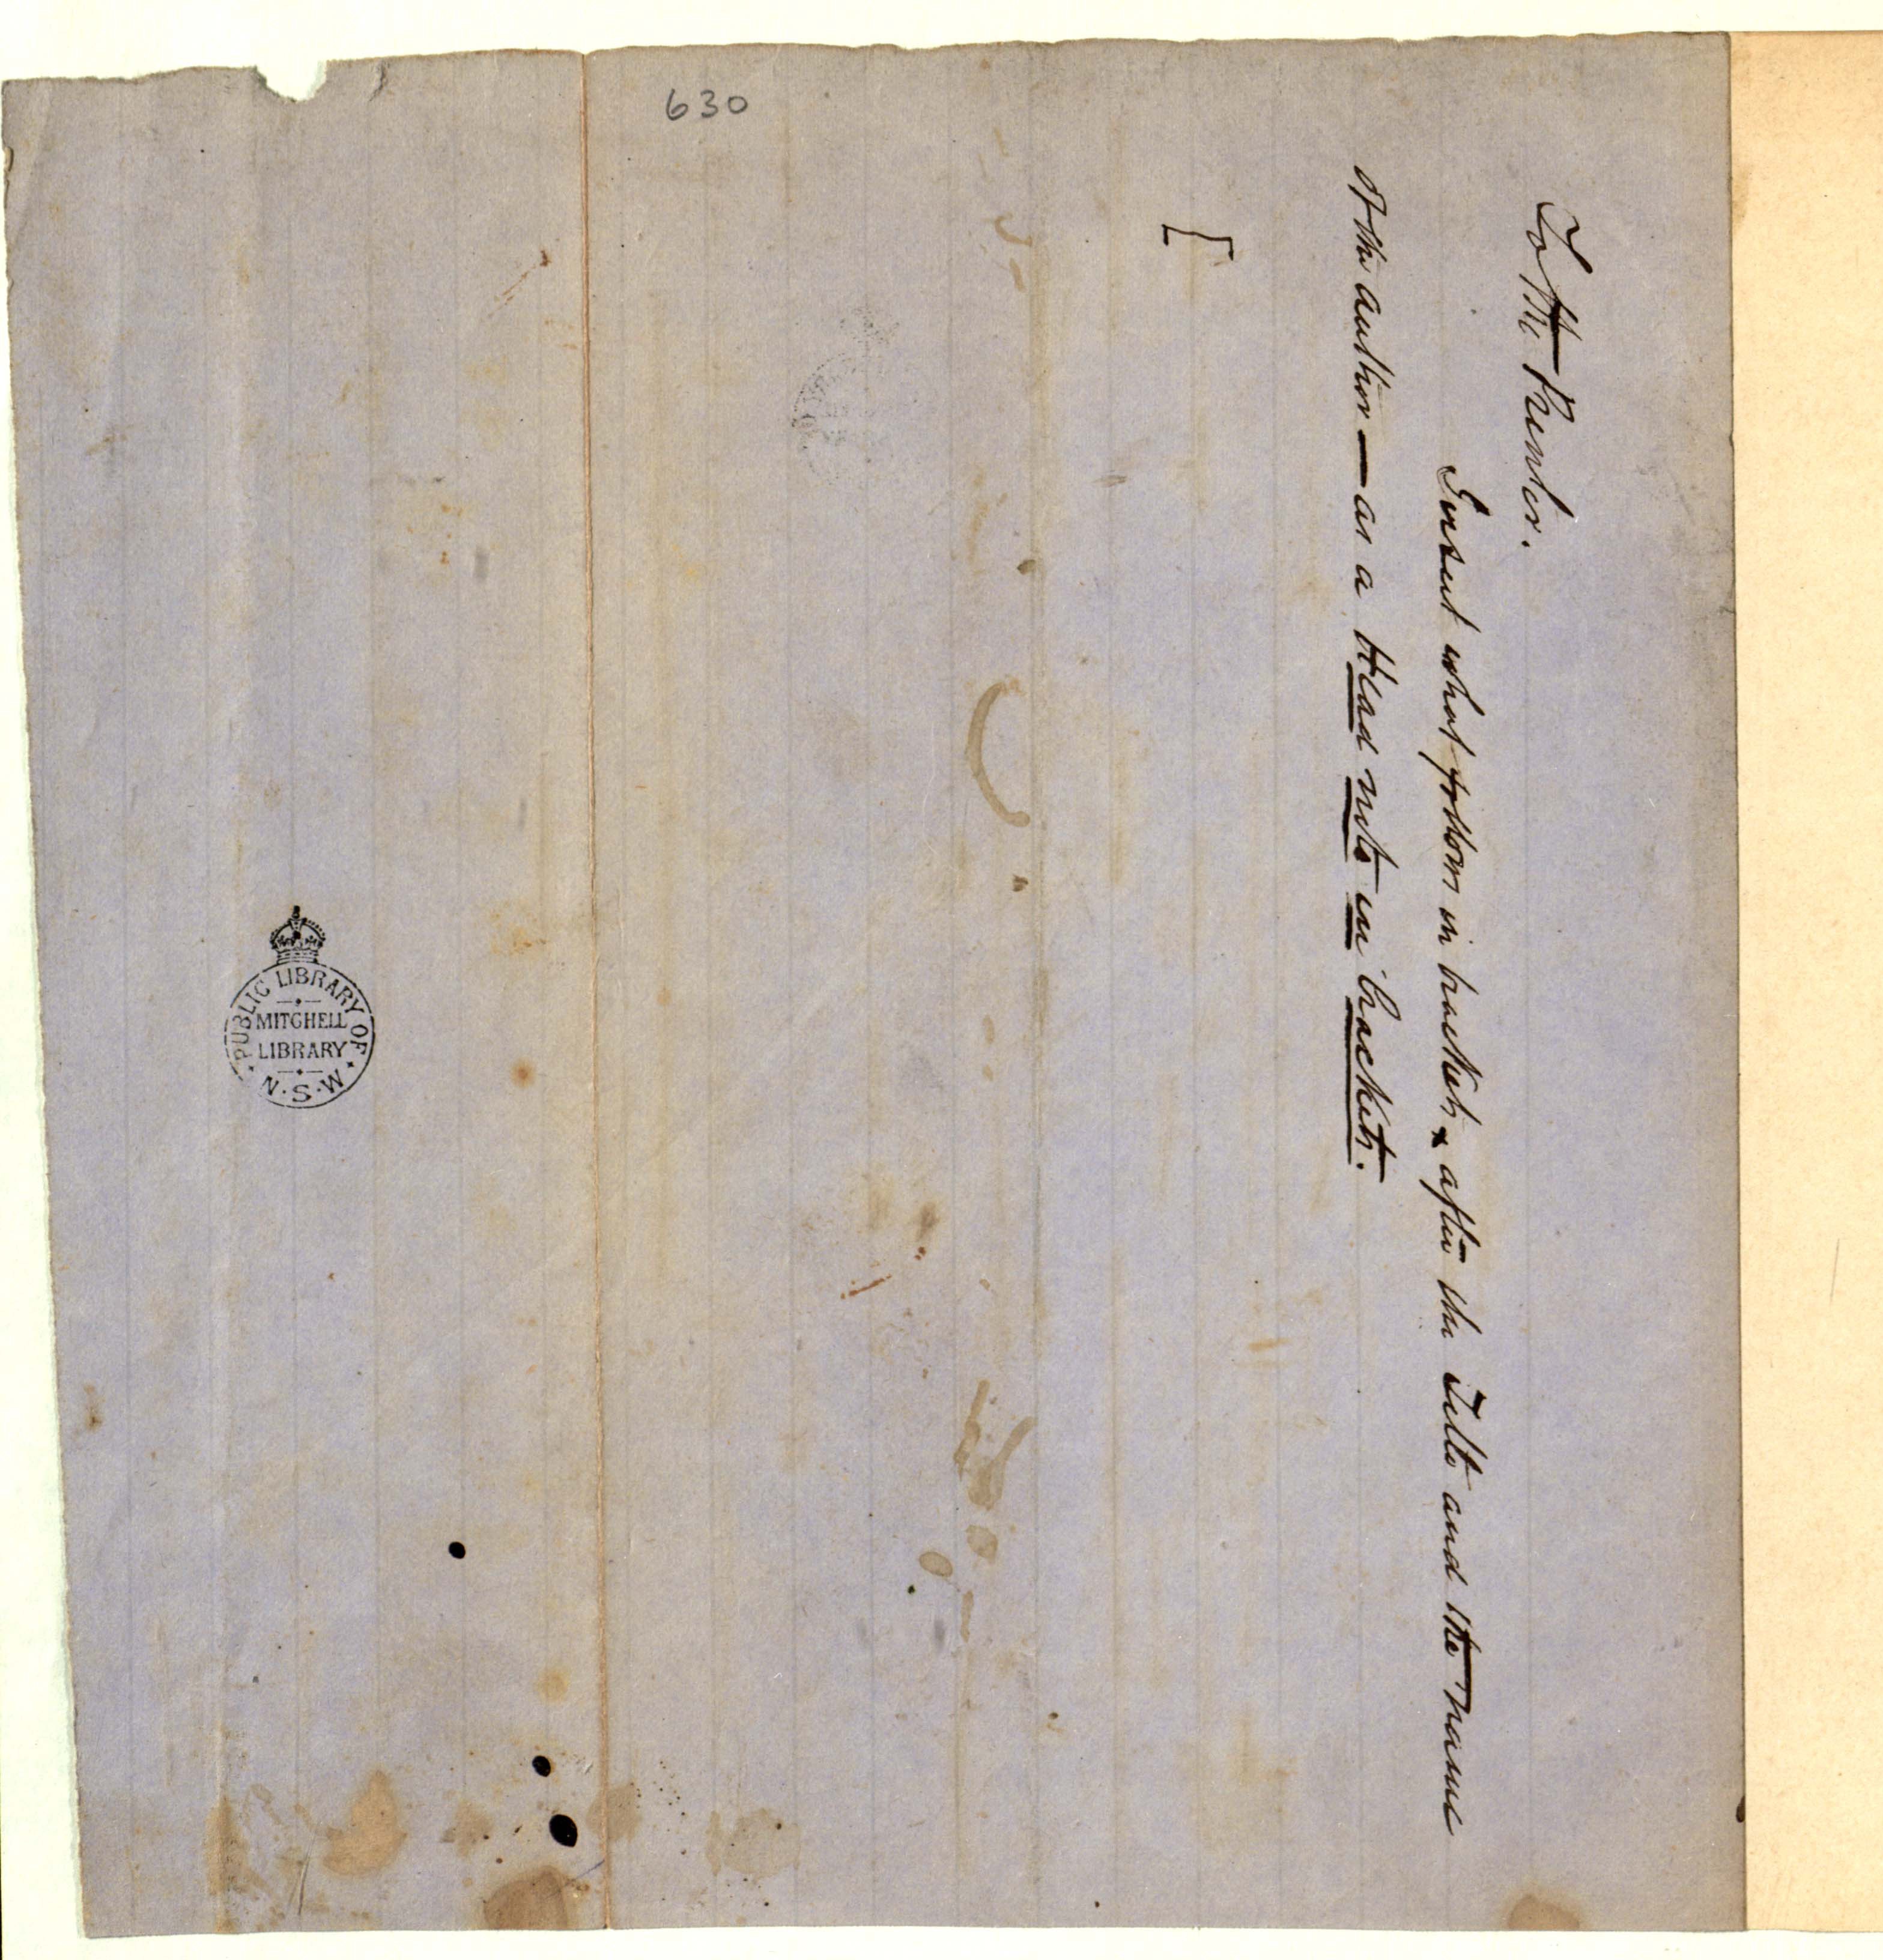 630
To the Printer.
Insert what follows in brackets x after the Title and the name
of the author — as a Head note in brackets.
[
PUBLIC LIBRARY OF
MITCHELL
LIBRARY
N.S.W